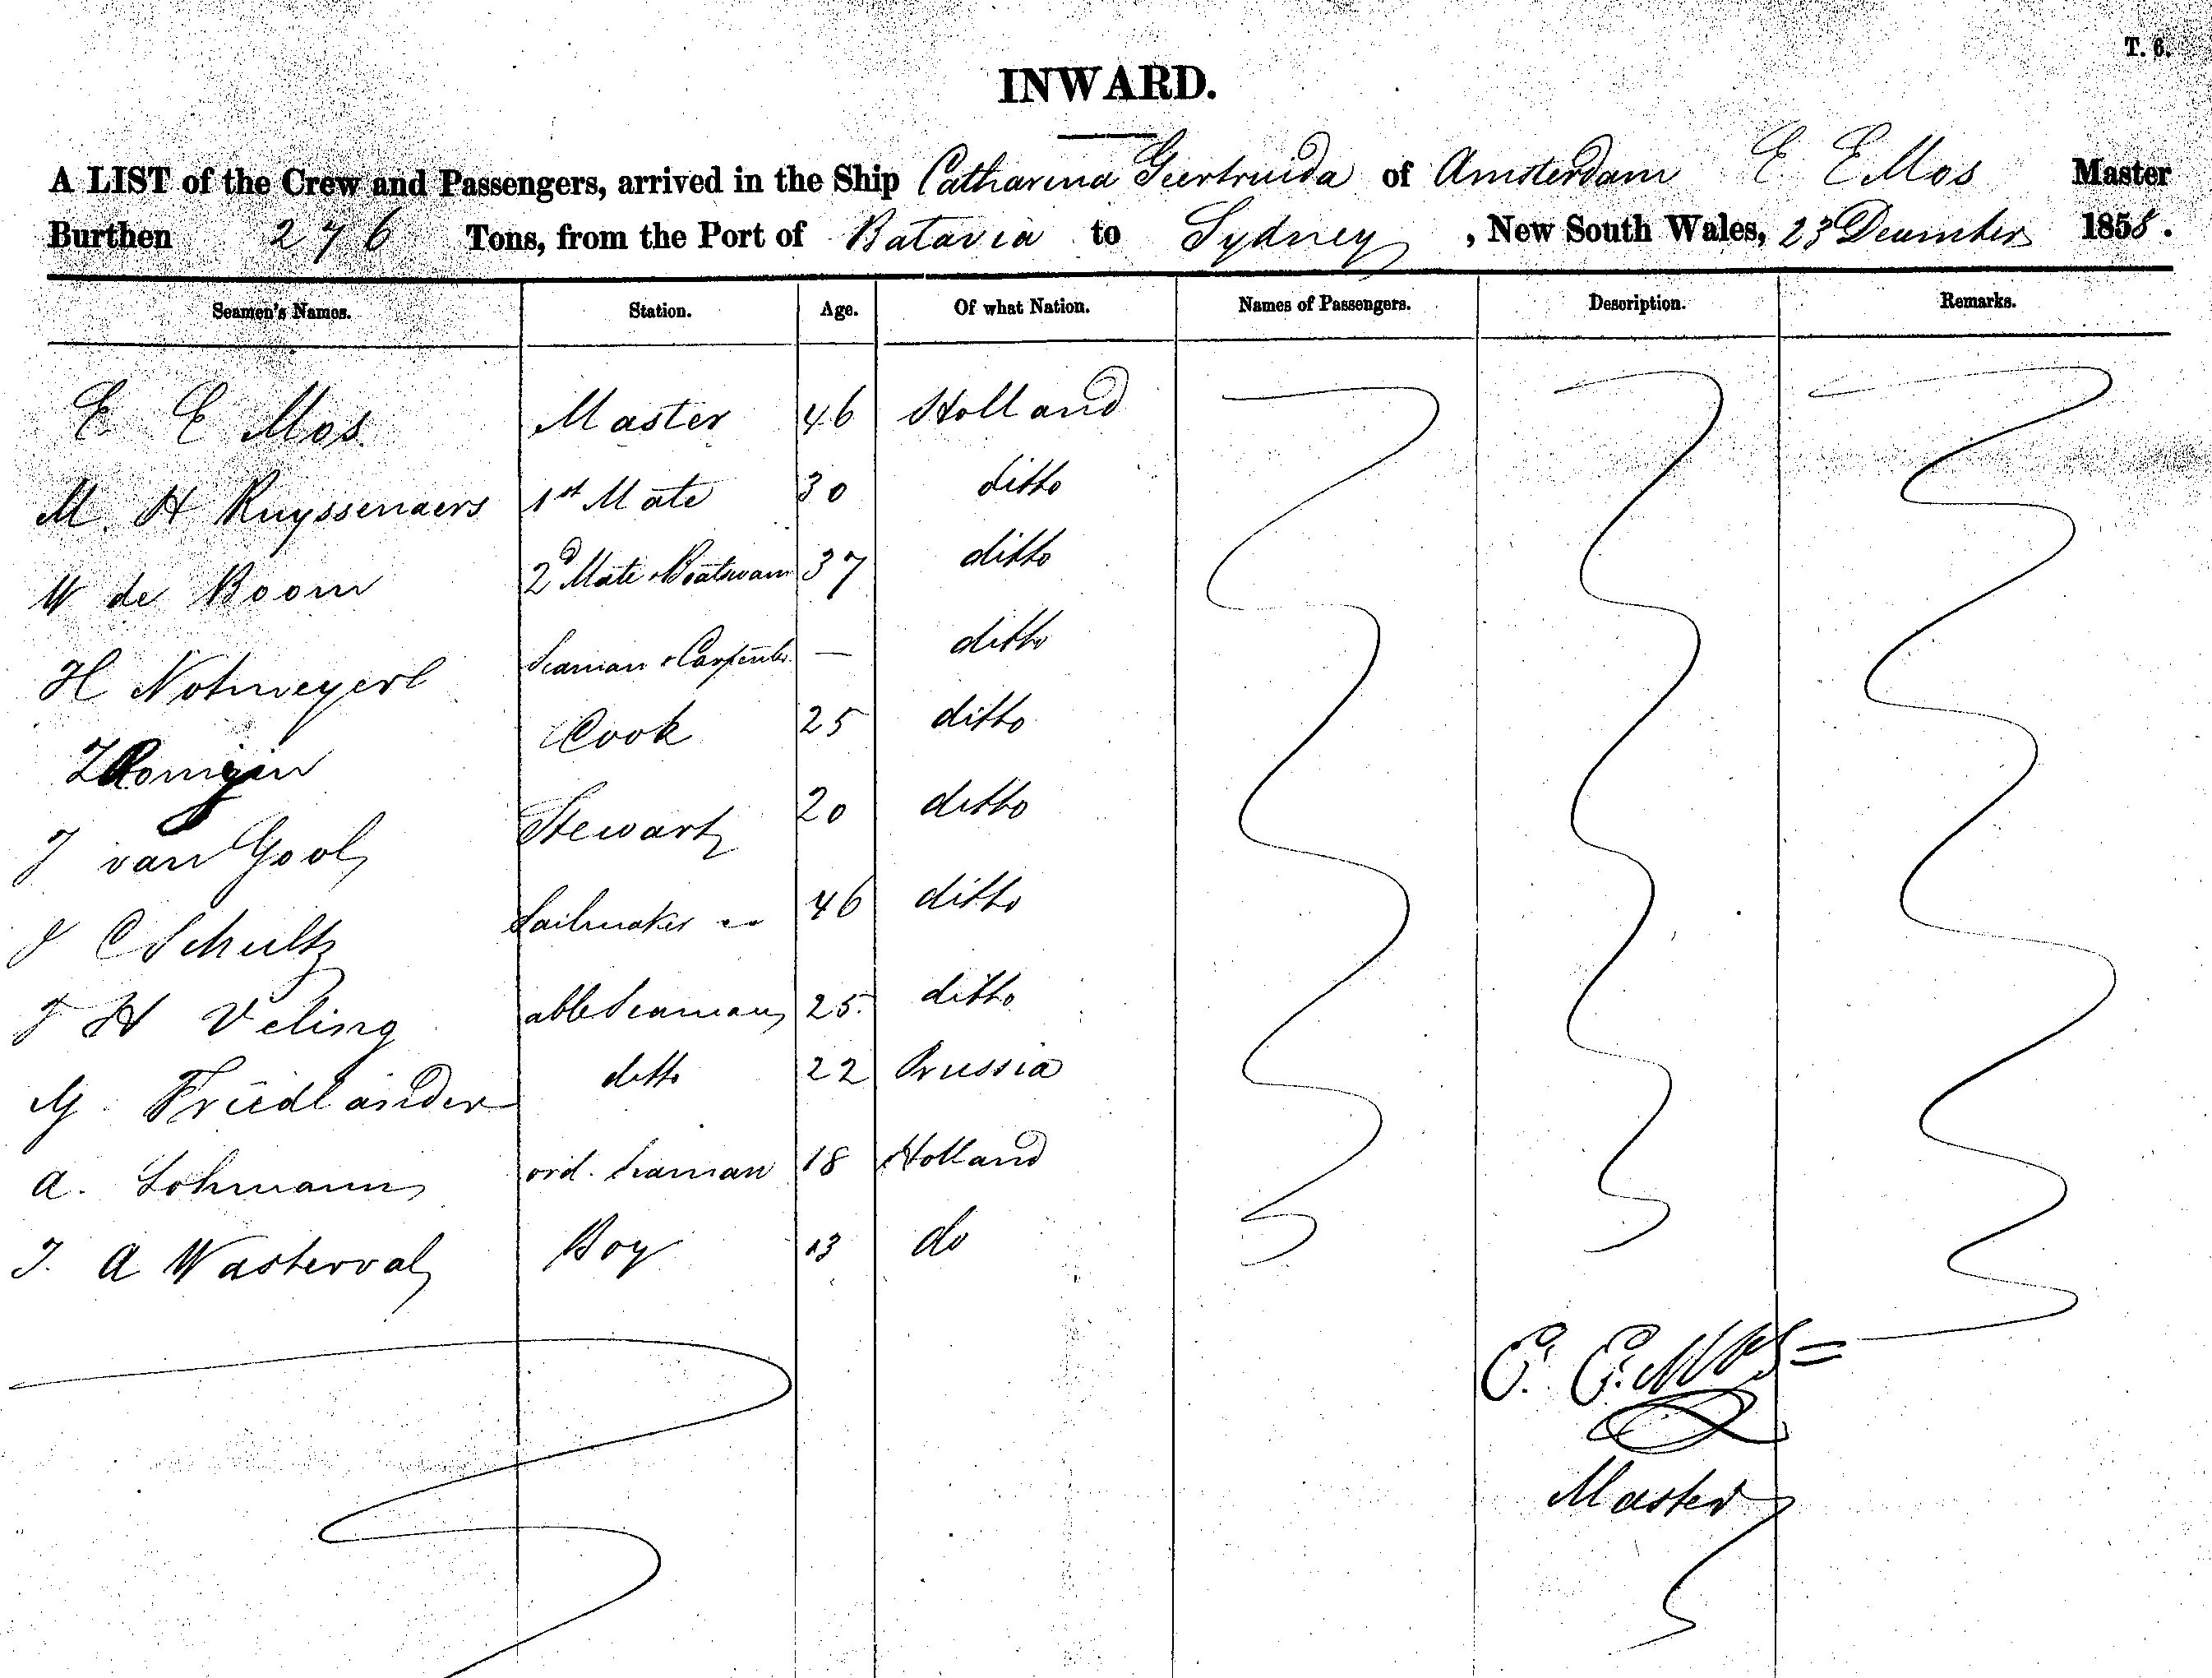 T. 6.
INWARD.
A LIST of the Crew and Passengers, arrived in the Ship Catharina Geertruida of Amsterdam E E Mos Master
Burthen 276 Tons, from the Port of Batavia to Sydney, New South Wales, 23 December 1858.
Seamen's Names. Station. Age. Of what Nation. Names of Passengers. Description. Remarks.
E E Mos Master 46 Holland
M. H Ruyssenaers 1st Mate 30 ditto
W de Boom 2d Mate & Boatswain 37 ditto
H Seaman & Carpenter — ditto
Cook 25 ditto
J van Gool Stewart 20 ditto
J C Schultz Sailmaker 46 ditto
J H Veling able Seaman 25. ditto
M. Friedlander ditto 22 Prussia
A. Lohmann ord. Seaman 18 Holland
J. A Wasterval Boy 13 do
E. E. Mos
Master